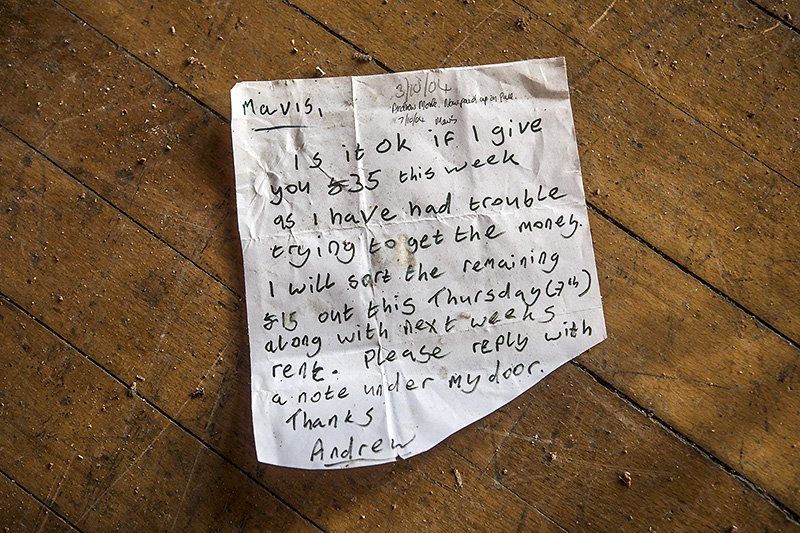 3/10/04
Mavis,
Andrew . Now paid up in Full.
7/10/04 Mavis
Is it ok if I give
you £35 this week
as I have had trouble
trying to get the money.
I will sort the remaining
£15 out this Thursday (7th)
along with next weeks
rent. Please reply with
a note under my door.
Thanks
Andrew